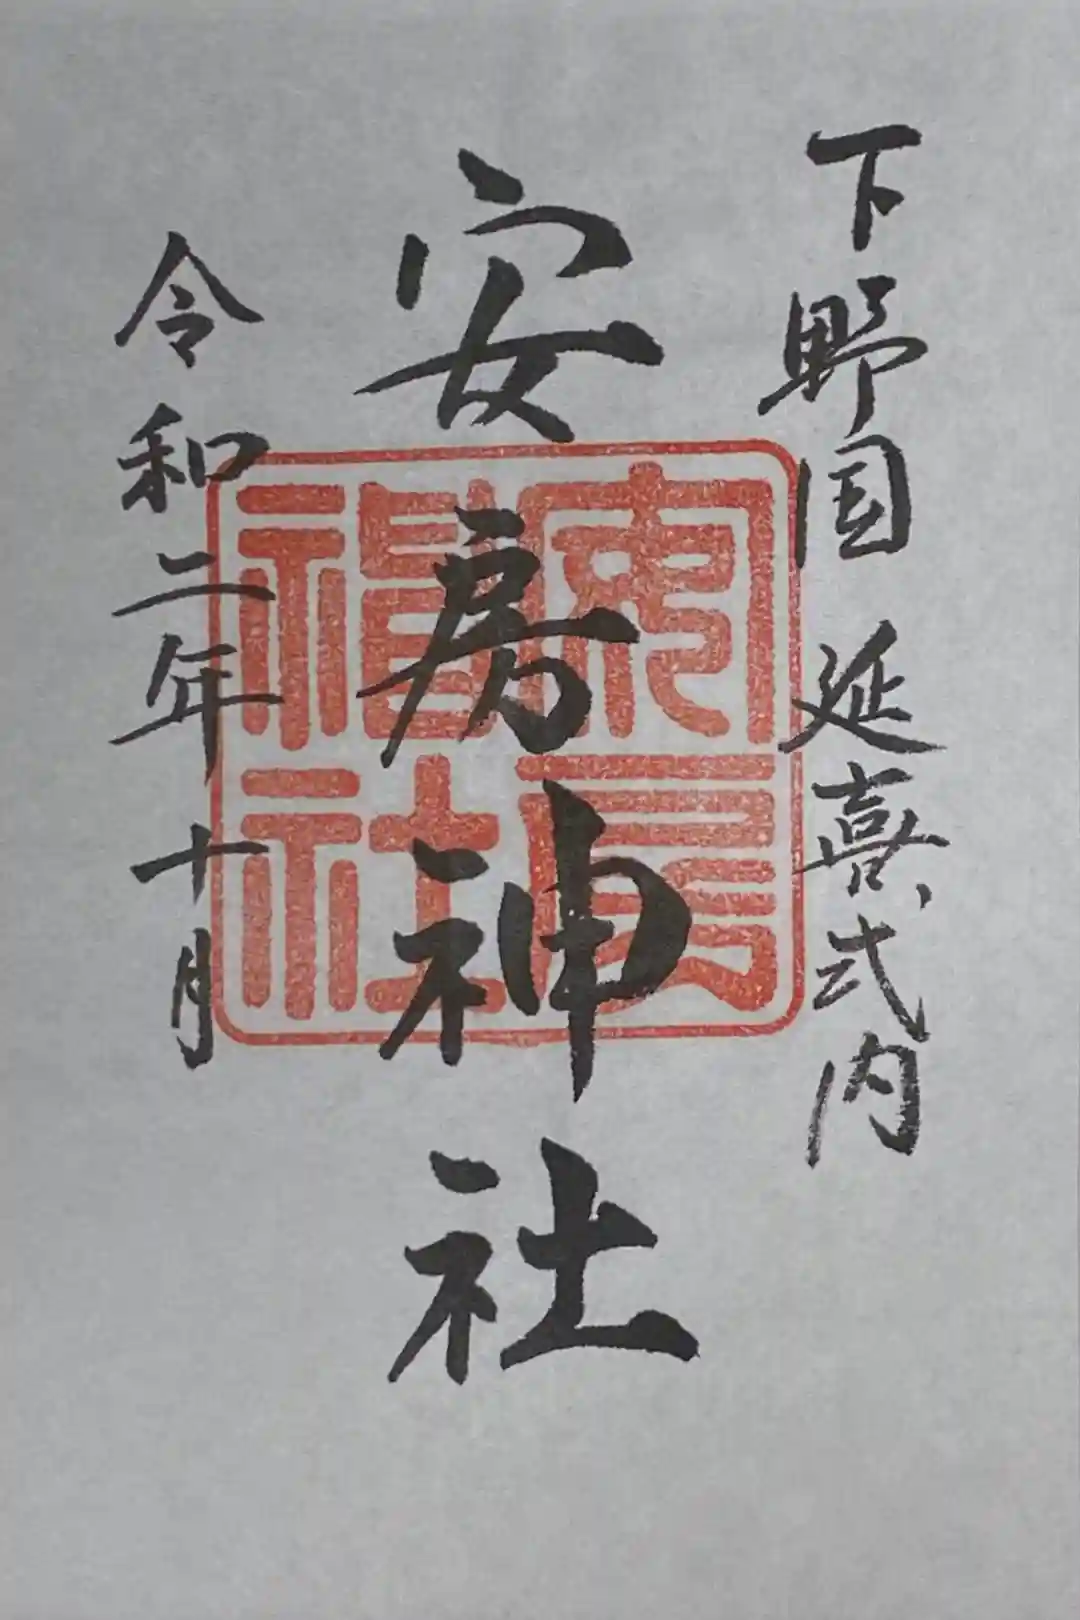 下野国 延喜式内
安房神社
令和二年十月
安房神社